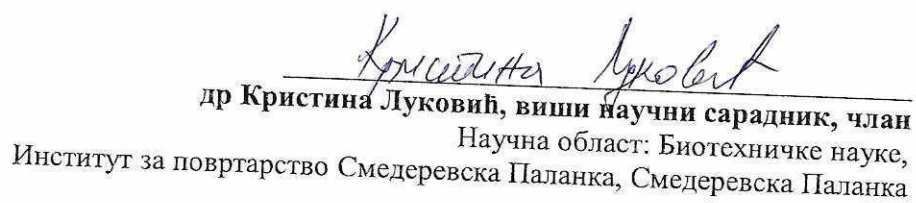 Кристина Луковић
др Кристина Луковић, виши научни сарадник, члан
Научна област: Биотехничке науке,
Институт за повртарство Смедеревска Паланка, Смедеревска Паланка